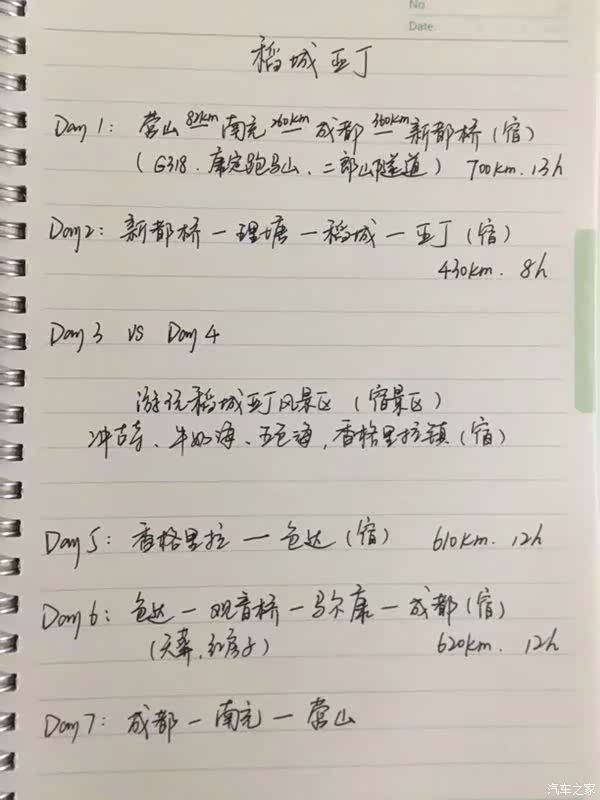 No
Date
稻城亚丁
Day 1: 营山 82km 南充 260km 成都 360km 新都桥(宿)
(G318.康定跑马山、二郎山隧道) 700km.13h
Day2: 新都桥—理塘—稻城—亚丁(宿)
430km. 8h
Day 3 VS Day 4
游玩稻城亚丁风景区(宿景区)
冲古寺、牛奶海、五色海,香格里拉镇(宿)
Day5: 香格里拉—色达(宿) 610km. 12h
Day6: 色达—观音桥—马尔康—成都(宿)
(天葬.红房子) 620km. 12h
Day7: 成都—南充—营山
汽车之家